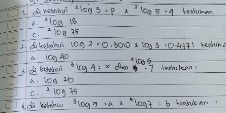 1. diketahui ²log 3 = p, ²log 5 = q tentukan
a. ²log 18
c. ²log 75
2. diketahui log 2 = 0,3010 & log 3 = 0,4771 tentukan
a. log 40
3. diketahui ³log 4 = x dan = 7 tentukan:
a. log 20
c. ²log 75
4. diketahui ²log 7 = b tentukan